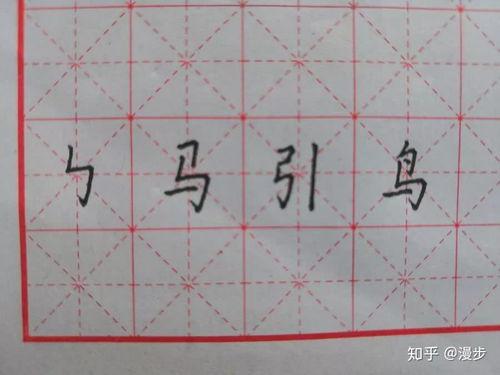 ㄣ 马 引 鸟
知乎 @漫步